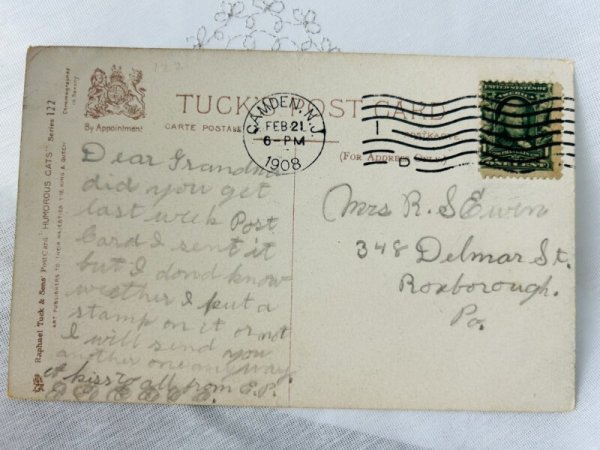 Raphael Tuck & Sons' Post Card "HUMOROUS CATS" Series 122
ART PUBLISHERS TO THEIR MAJESTIES THE KING & QUEEN
Chromographed in Saxony
By Appointment
122
TUCK'S POST CARD
CARTE POSTALE
POSTKARTE
(For Address Only)
CAMDEN, N.J.
FEB 21
6-PM
1908
1
D
Dear Grandma
did you get
last week Post
Card I sent it
but I dond know
wether I put a
stamp on it or not
I will send you
another one anyway
A kiss to all from E.P.
Mrs R. S Ewen
348 Delmar St.
Roxborough.
Pa.